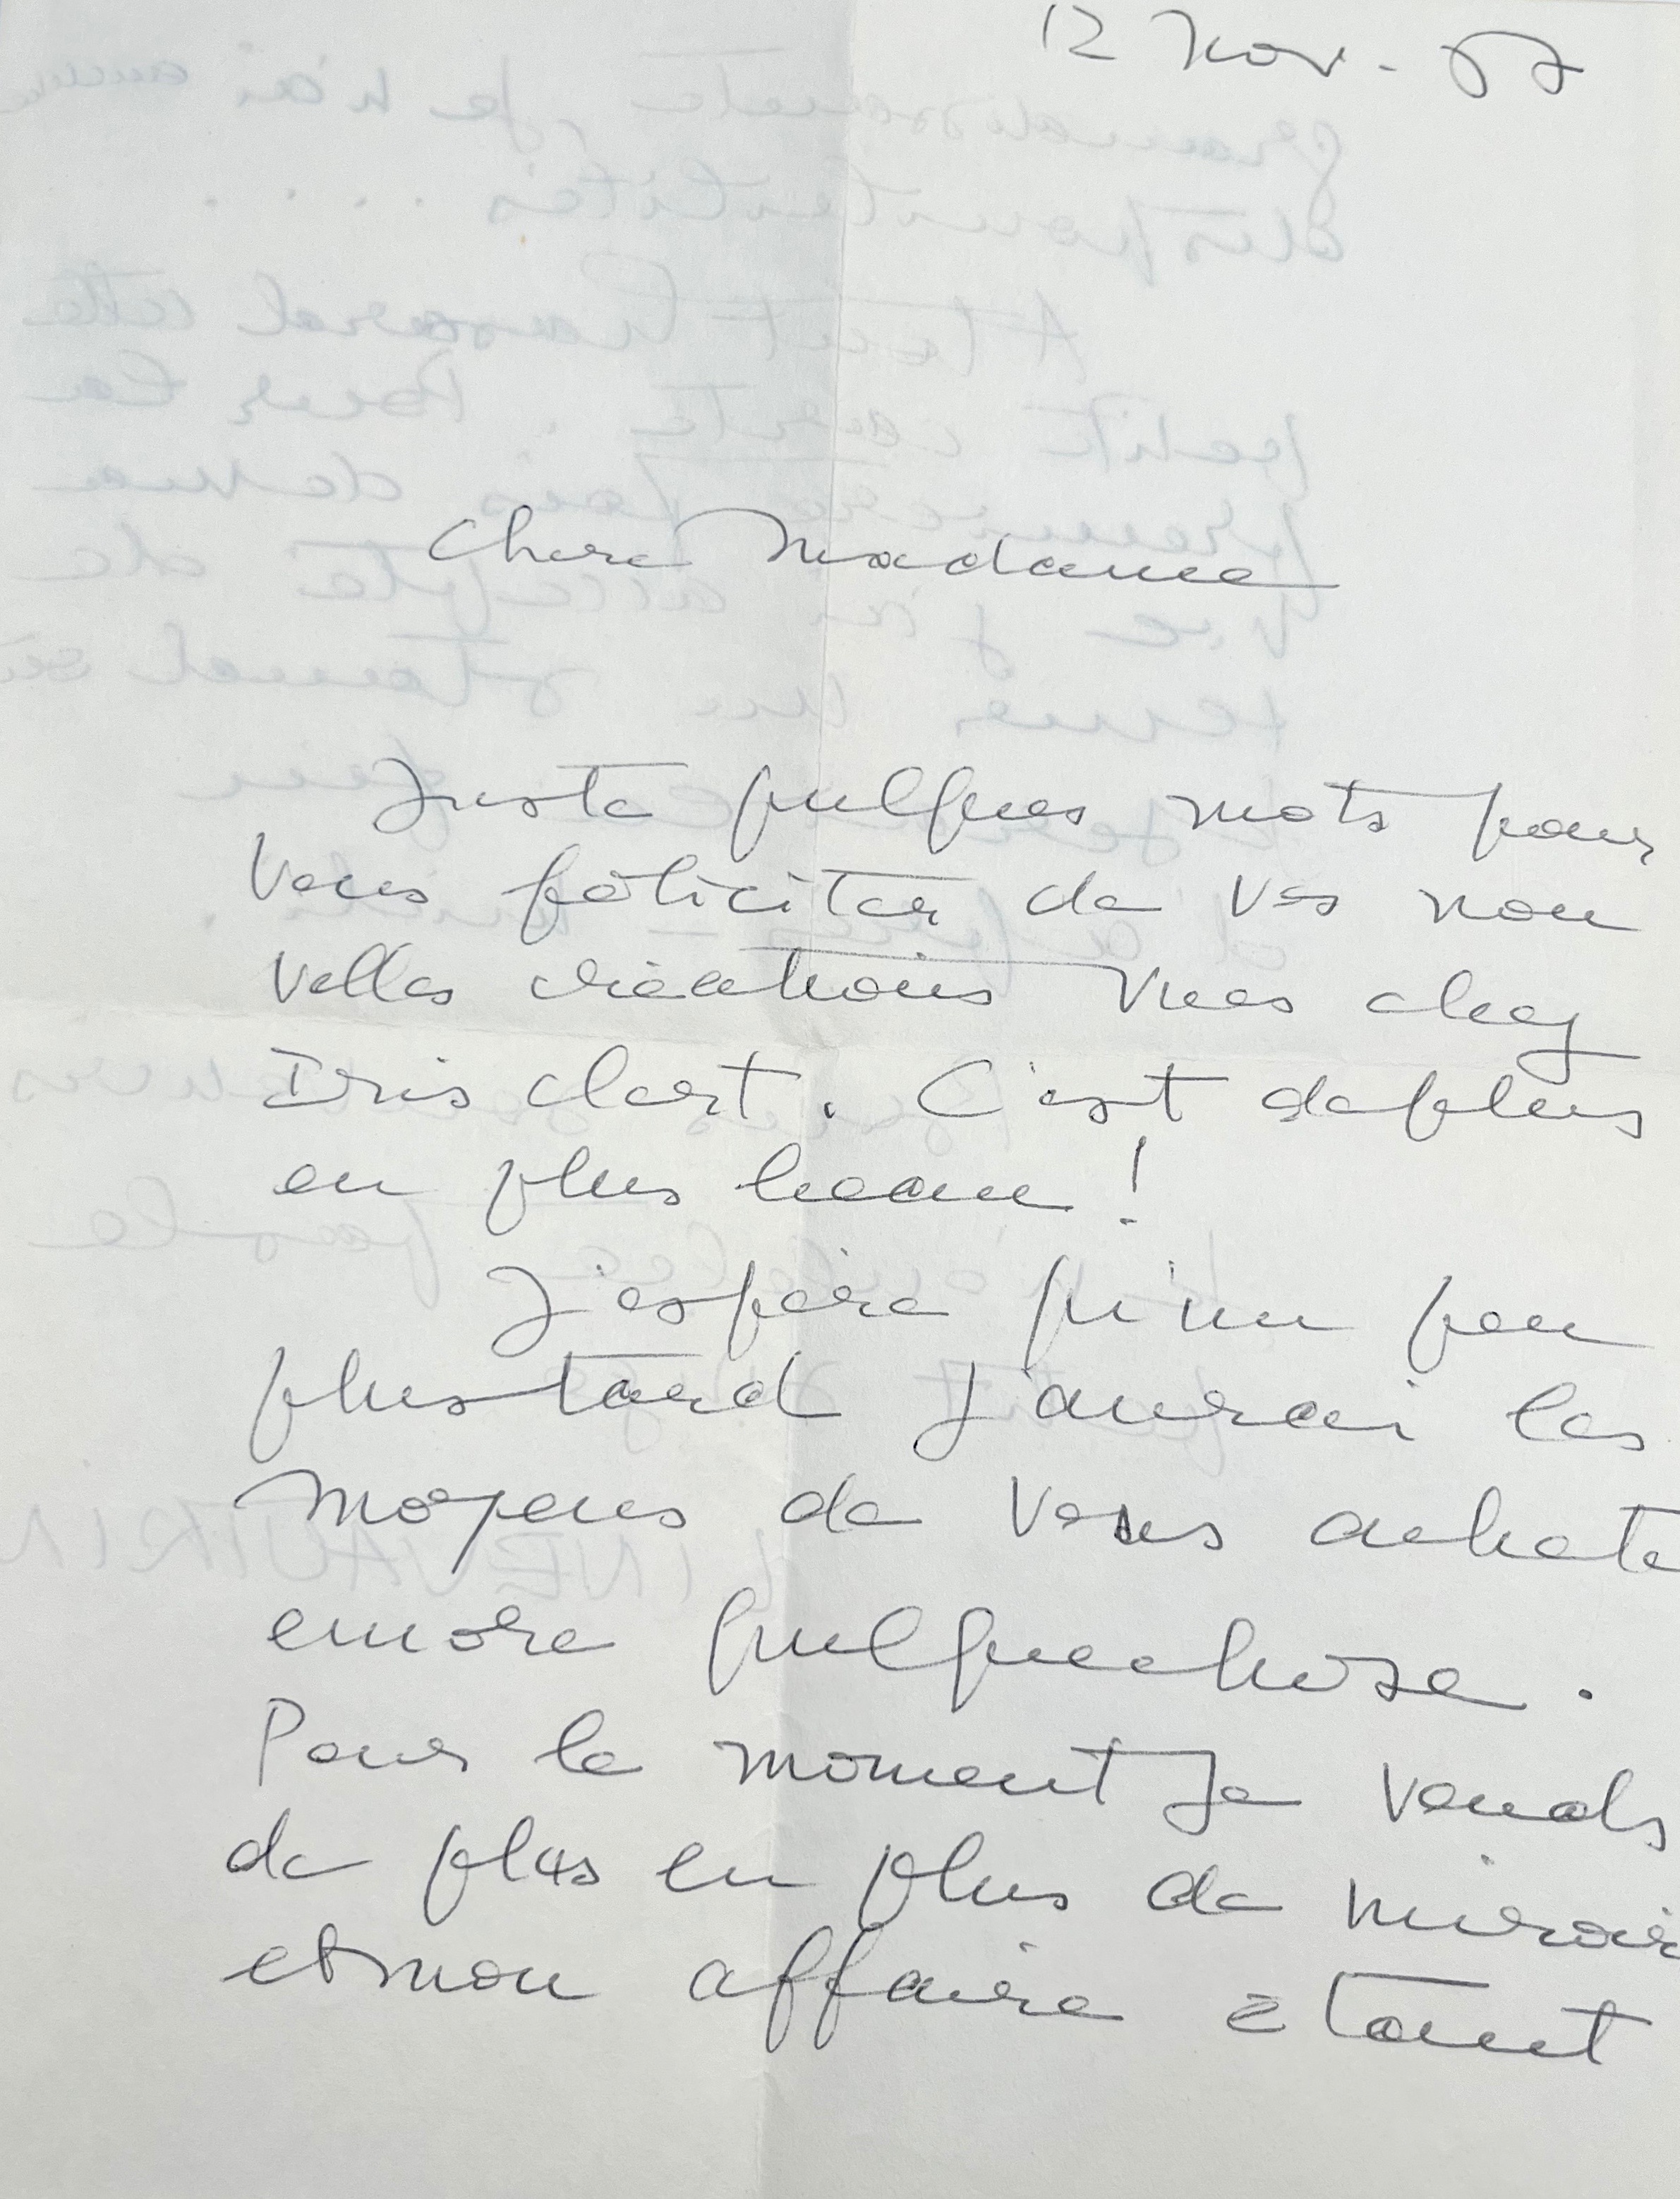 12 Nov. 57
Chere Madame
Juste quelques mots pour
vous féliciter de vos nou
velles créations vues chez
Iris Clert. C'est de plus
en plus beau !
J'espère qu'un peu
plus tard j'aurai les
moyens de vous achete
encore quelque chose.
Pour le moment je vends
de plus en plus de miroir
et mon affaire étant